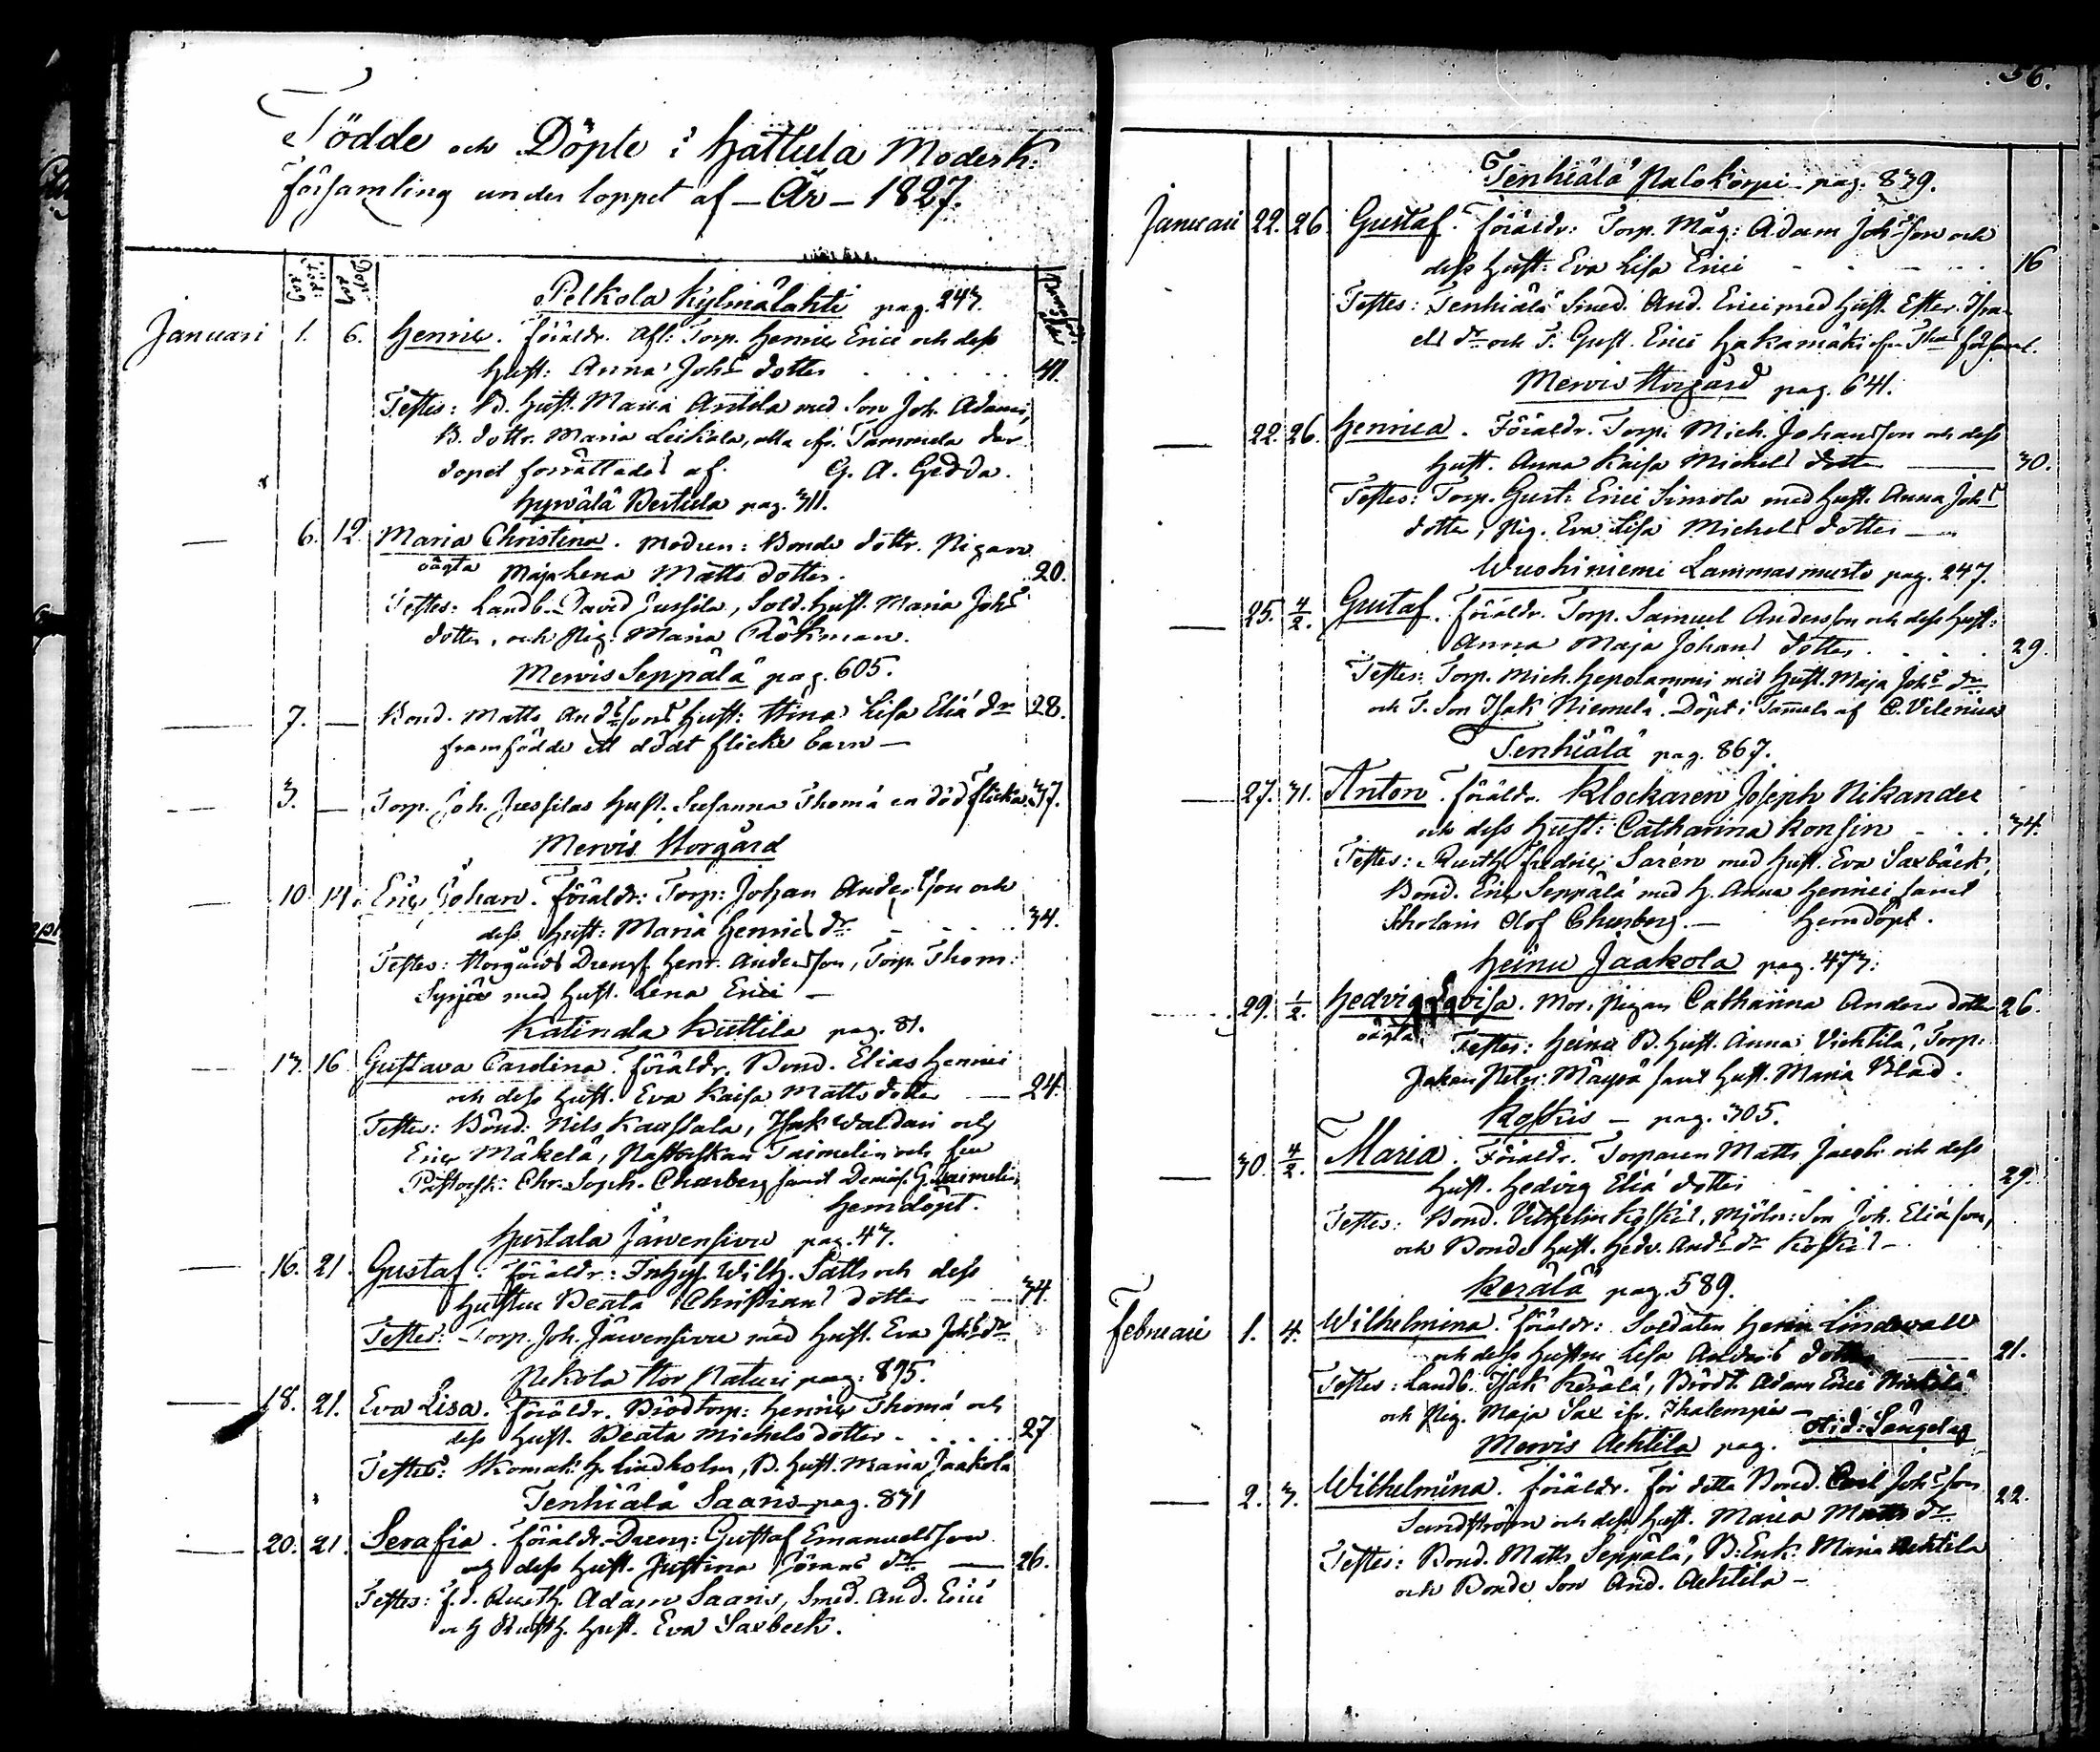 Födde och Döpte i Hattula Moderk:
församling under loppet af – År – 1827.
Föd: dag
Döp. dag
Pelkola Kylmälahti pag. 243.
Januari 1. 6. Henric. föräldr. Afl: Torp. Henric Erici och dess
Hust: Anna Joh:s dotter . . . . . 41.
Testes: B. Hust. Maria Anttila med Son Joh. Adami,
B. dottr. Maria Leikola, alla ifr. Tammela der
dopet förrättades af. G. A. Gedda.
Hyrvälä Bertula pag. 311.
— 6. 12. Maria Christina. modren: Bonde dottr. Pigan
oägta Maja Lena Matts dotter. . 20.
Testes: Landb. David Jussila, Sold. Hust. Maria Joh:s
dotter, och Pig. Maria Rökman.
Mervis Seppälä pag. 605.
— 7. — Bond. Matts And:s sons Hust: Stina Lisa Eliæ dr 28.
framfödde ett dödt flicke barn —
— 3. — Torp. Joh. Jussilas Hust. Susanna Thomæ en död flicka 37.
Mervis Storgård
— 10. 14. Eric Johan. föräldr: Torp: Johan Andersson och
dess Hust: Maria Henrics dr . . . 34.
Testes: Storgårds Dreng. Henr. Andersson, Torp. Thom:
Syrjä med Hust. Lena Erici —
Katinala Kuttila pag. 81.
— 13. 16 Gustava Carolina. föräldr. Bond. Elias Henrici
och dess Hust. Eva Kaisa Matts dotter — 24.
Testes: Bönd: Nils Kaussala, Isak Waldari och
Eric Mäkelä, Pastorskan Taimelin och fru
Pastorsk: Chr. Soph. Charberg samt Demois. G. Taimelin,
Hemdöpt.
Hurtala Järvensivu pag. 43.
— 16. 21. Gustaf. föräldr.: Inhys. Wilh. Sätts och dess
Hustru Beata Christians dotter — 34.
Testes: Torp. Joh. Järvensivu med Hust. Eva Joh:s dr
Pekola Stor Naturi pag: 895.
— 18. 21. Eva Lisa. föräldr. Brödtorp: Henric Thomæ och
dess Hust. Beata Michels dotter . . . . . 27
Testes: Skomak: H. Lindholm, B. Hust. Maria Jaakola
Tenhiälä Saaris pag. 831
— 20. 21. Serafia. föräldr. Dreng: Gustaf Emanuelsson
och dess Hust. Justina Jörans dr — 26.
Testes: f. d. Rusth. Adam Saaris, Smed. And. Erici
och Rusth. Hust. Eva Saxbeck.
56.
Tenhiälä Palokorpi pag. 839.
Januari 22. 26. Gustaf. föräldr: Torp. Måg: Adam Joh:s son och
dess Hust: Eva Lisa Erici . . . . 16
Testes: Tenhiälä Smed. And. Erici med Hust. Ester Isra-
els dr och T. Gust. Erici Hakamäki församl.
Mervis Storgård pag. 641.
— 22. 26. Henrica. Föräldr. Torp. Mich. Johansson och dess
Hust. Anna Kaisa Michels dotter — 30.
Testes: Torp. Gust: Erici Simola med Hust. Anna Joh:s
dotter, Pig. Eva Lisa Michels dotter —
Wuohiniemi Lammasmusto pag. 247.
— 25. 4/2. Gustaf. föräldr. Torp. Samuel Andersson och dess Hust:
Anna Maja Johans dotter . . . . 29.
Testes: Torp. Mich. Hepolammi med Hust. Maja Joh:s dr
och T. Son Isak Niemelä. Döpt i Tamela af C. Vilenius
Tenhiälä pag. 867.
— 27. 31. Anton. föräldr. Klockaren Joseph Nikander
och dess Hust: Catharina Konsin . . . 34.
Testes: Rusth. Fredric Saxén med Hust. Eva Saxbäck,
Bond. Eric Seppälä med H. Anna Henrici samt
Scholaris Olof Charberg. — Hemdöpt.
Heinu Jaakola pag. 473.
— 29. 1/2. Hedvig Lovisa. Mor. Pigan Catharina Anders dotter 26.
oägta. Testes: Heinu B. Hust. Anna Vichtilä, Torp.
Johan samt Hust. Maria Blad.
Koskis — pag. 305.
— 30. 4/2. Maria. Föräldr. Torparen Matts Jacobs och dess
Hust. Hedvig Eliæ dotter . . . 29.
Testes: Bond. Vilhelm Koskis, Mjöln: Son Joh. Eliæ son,
och Bonde Hust. Hedv. And:s dr Koskis —
Kerälä pag. 589.
Februari 1. 4. Wilhelmina. föräldr: Soldaten Henric Lindvall
och dess Hustru Lisa Anders dotter — 21.
Testes: Landb. Isak Kerälä, Brödt. Adam Erici Mickilä
och Pig. Maja Sax ifr. Ihalempis —
Mervis Achtila pag. Otid: Sängelag
— 2. 3. Wilhelmina. föräldr. för detta Bond. Carl Joh:s son
Sandström och dess Hust. Maria Matts dr 22.
Testes: Bond. Matts Seppälä, B: Enk: Maria Achtila
och Bonde Son And. Achtila —